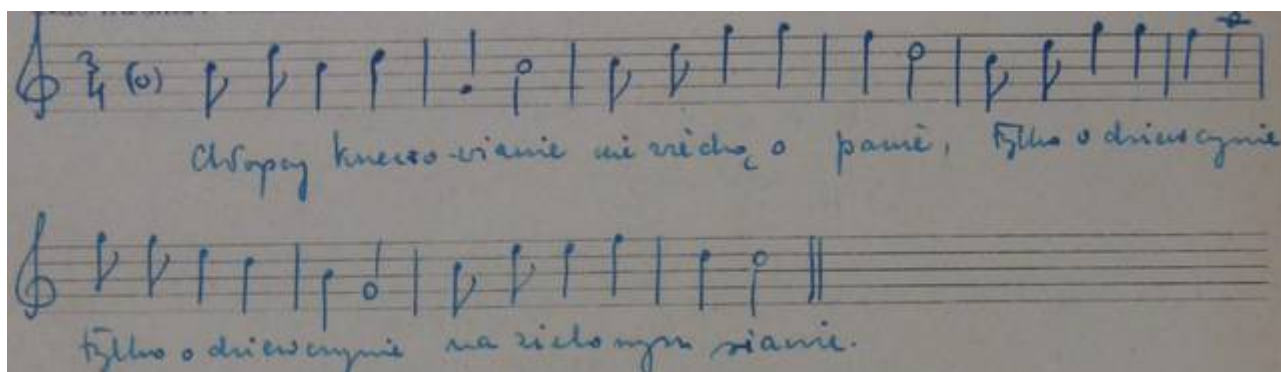 3/4 (o)
Chłopcy knesso-wianie nie wzdichą o panie, tylko o dziewcynie
tylko o dziewcynie na zielonym sianie.